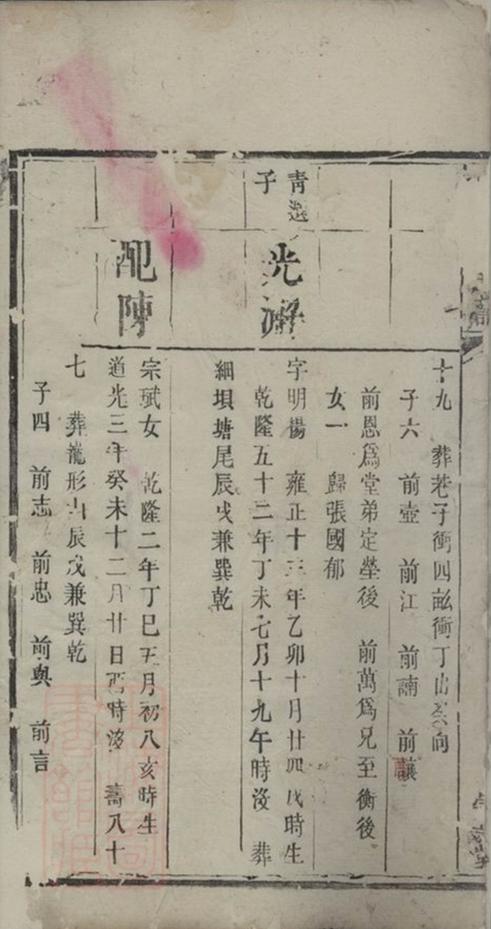 十九 葬巷子衝四畝衝丁山癸向
子六 前壺 前江 前諵 前讓
前恩爲堂弟定塋後 前萬爲兄至衡後
女一 歸張國郁
青選子
光濢
字明楊 雍正十三年乙卯十月廿四戌時生
乾隆五十二年丁未七月十九午時沒 葬
細垻塘尾辰戌兼巽乾
配陳
宗珷女 乾隆二年丁巳五月初八亥時生
道光三年癸未十二月廿日酉時沒 壽八十
七 葬龍形山辰戌兼巽乾
子四 前志 前忠 前與 前言